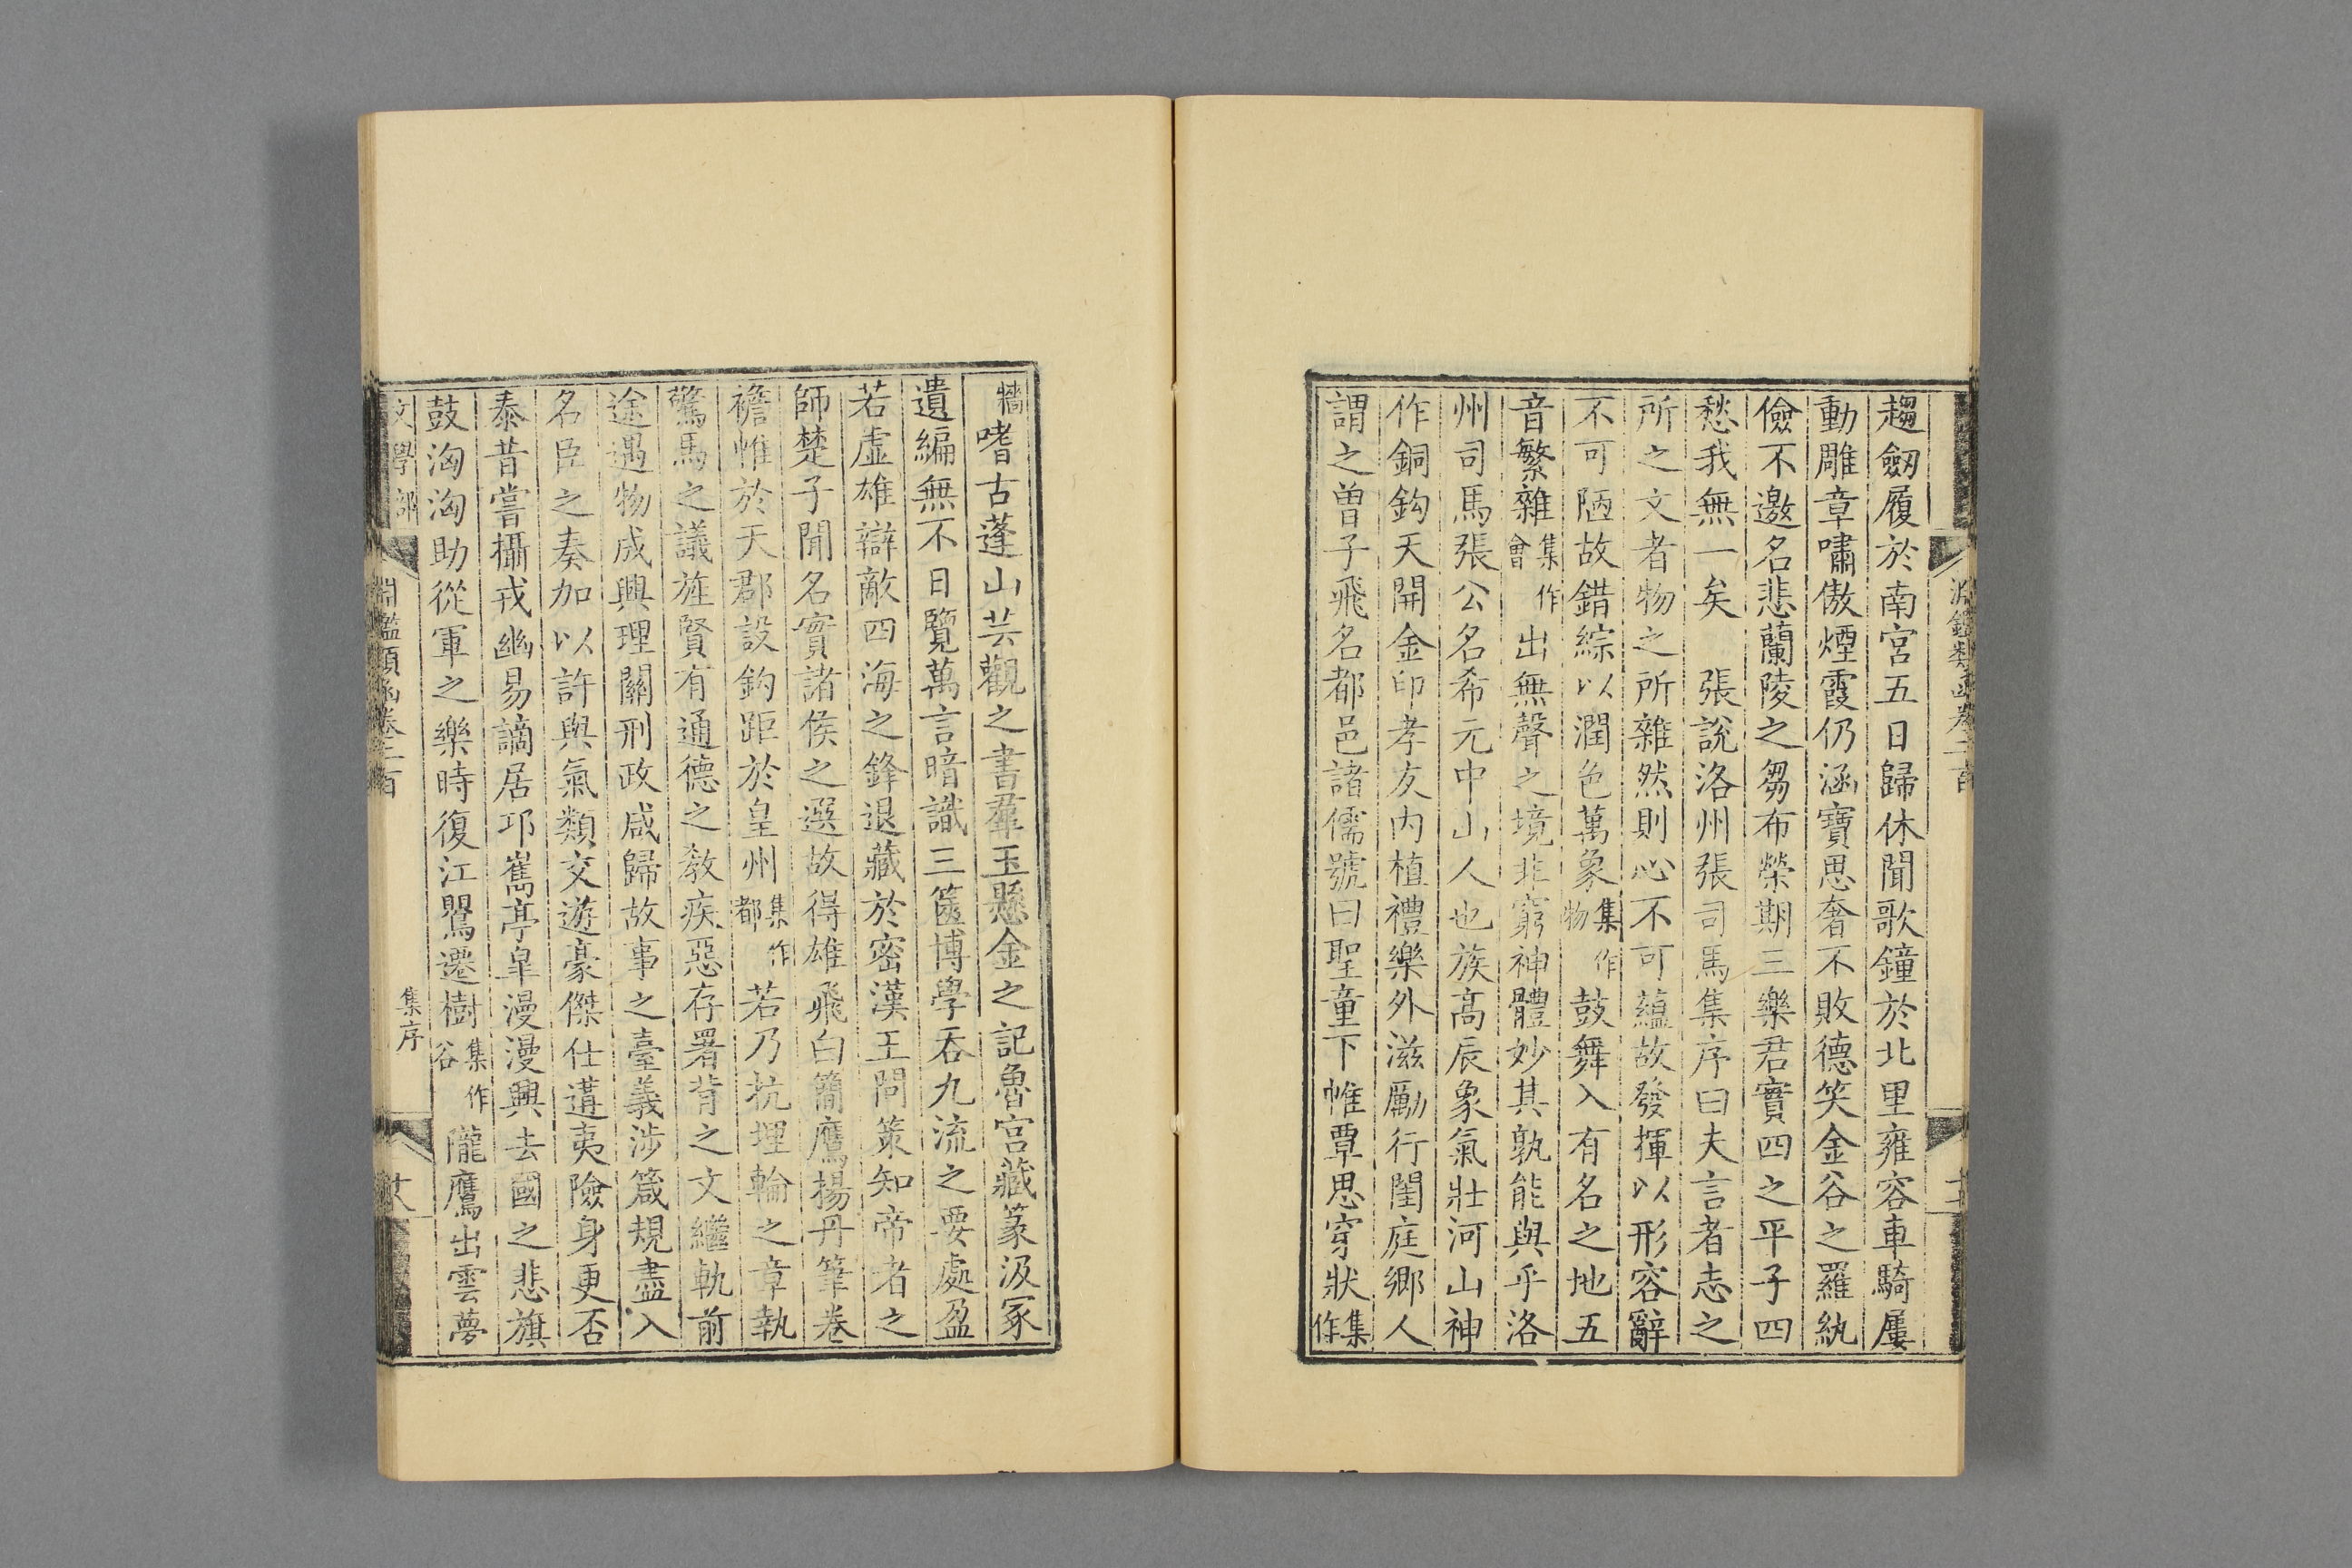 趨劒履於南宮五日歸休聞歌鐘於北里雍容車騎屢
動雕章嘯傲煙霞仍涵寶思奢不敗德笑金谷之羅紈
儉不邀名悲蘭陵之芻布榮期三樂君實四之平子四
愁我無一矣　張說洛州張司馬集序曰夫言者志之
所之文者物之所雜然則心不可蘊故發揮以形容辭
不可陋故錯綜以潤色萬象集作物鼓舞入有名之地五
音繁雜集作會出無聲之境非窮神體妙其孰能與乎洛
州司馬張公名希元中山人也族高辰象氣壯河山神
作銅鈎天開金印孝友內植禮樂外滋勵行閨庭鄉人
謂之曾子飛名都邑諸儒號曰聖童下帷覃思穿狀集作
牆嗜古蓬山芸觀之書羣玉懸金之記魯宮藏篆汲冢
遺編無不日覽萬言暗識三篋博學吞九流之要處盈
若虛雄辯敵四海之鋒退藏於密漢王問策知帝者之
師楚子聞名實諸侯之選故得雄飛白簡鷹揚丹筆卷
襜帷於天郡設鈎距於皇州集作都若乃抗埋輪之章執
驚馬之議旌賢有通德之教疾惡存署背之文繼軌前
途遇物成興理關刑政咸歸故事之臺義涉箴規盡入
名臣之奏加以許與氣類交遊豪傑仕遘夷險身更否
泰昔嘗攝戎幽易謫居邛巂亭皐漫漫興去國之悲旗
鼓洶洶助從軍之樂時復江鸎遷樹集作谷隴鷹出雲夢
文學部
淵鑑類函卷二百
集序